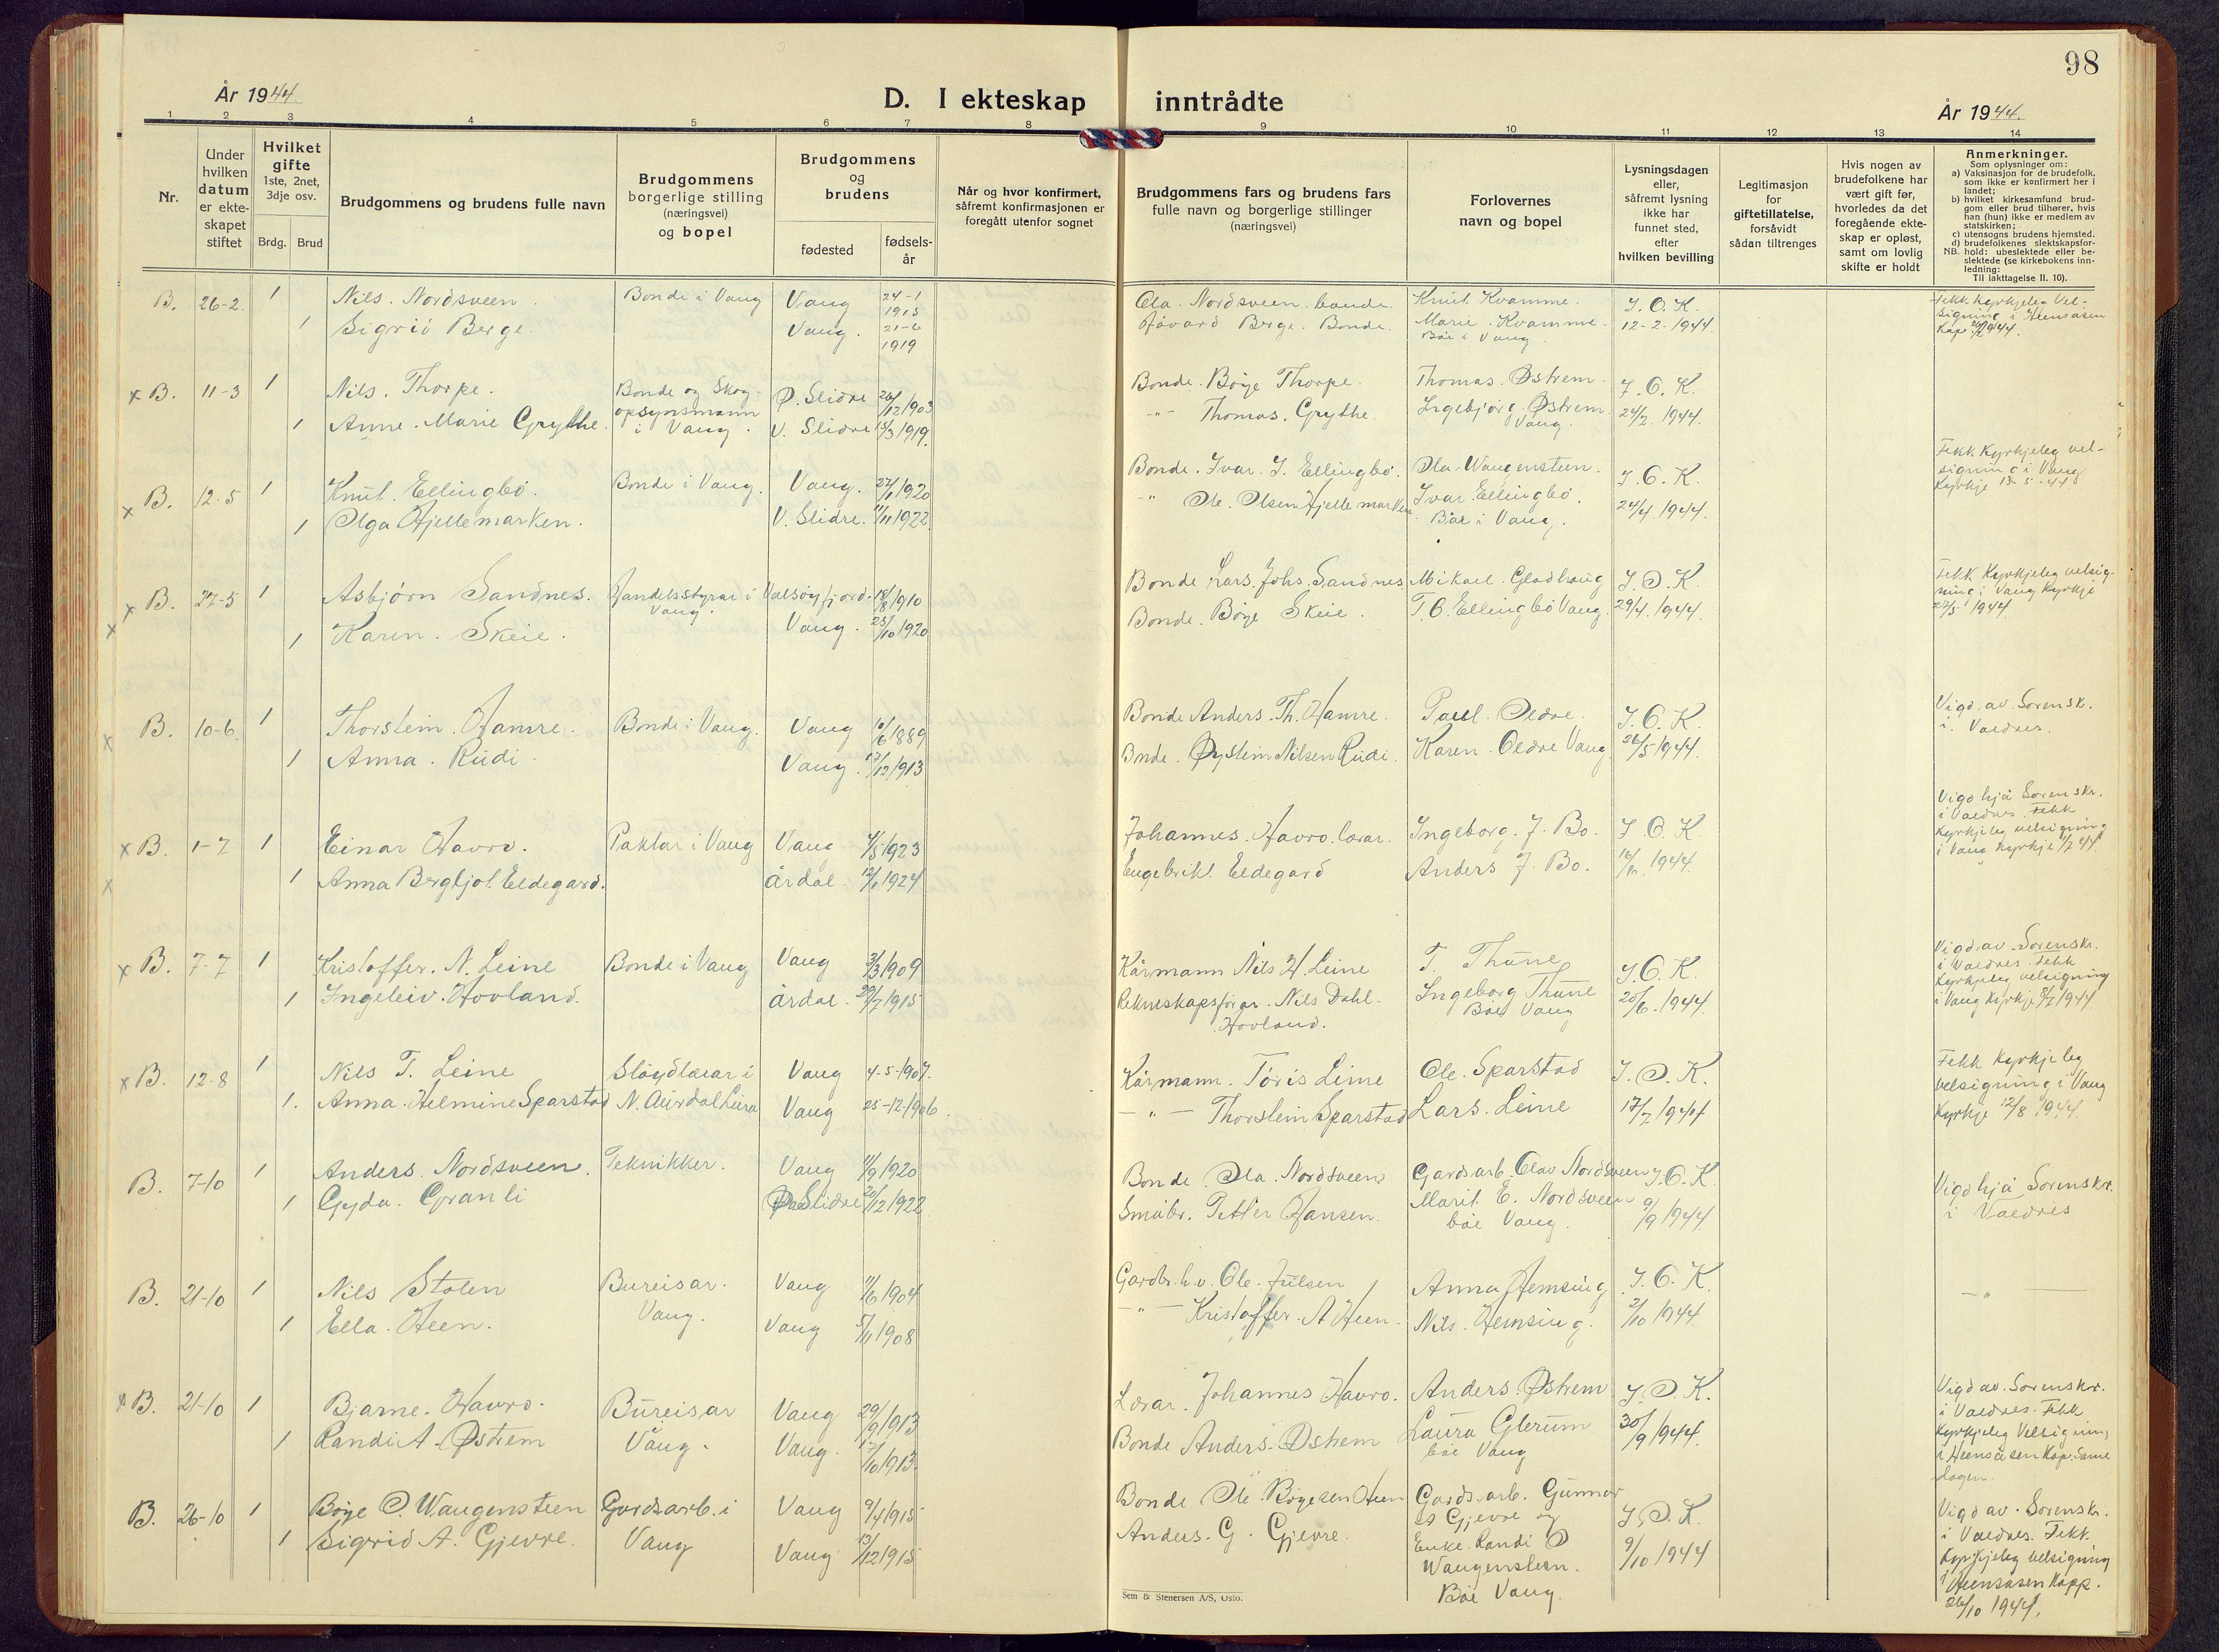 98
År 1944.
D. I ekteskap inntrådte
År 1944.
1 2 3 4 5 6 7 8 9 10 11 12 13 14
Nr.
Under hvilken datum er ekteskapet stiftet
Hvilket gifte
1ste, 2net, 3dje osv.
Brdg. Brud
Brudgommens og brudens fulle navn
Brudgommens borgerlige stilling (næringsvei) og bopel
Brudgommens og brudens
fødested
fødsels-år
Når og hvor konfirmert, såfremt konfirmasjonen er foregått utenfor sognet
Brudgommens fars og brudens fars fulle navn og borgerlige stillinger (næringsvei)
Forlovernes navn og bopel
Lysningsdagen eller, såfremt lysning ikke har funnet sted, efter hvilken bevilling
Legitimasjon for giftetillatelse, forsåvidt sådan tiltrenges
Hvis nogen av brudefolkene har vært gift før, hvorledes da det foregående ekteskap er opløst, samt om lovlig skifte er holdt
Anmerkninger.
Som oplysninger om:
a) Vaksinasjon for de brudefolk, som ikke er konfirmert her i landet;
b) hvilket kirkesamfund brudgom eller brud tilhører, hvis han (hun) ikke er medlem av statskirken;
c) utensogns brudens hjemsted.
d) brudefolkenes slektskapsforhold: ubeslektede eller beslektede (se kirkebokens innledning:
NB. Til iakttagelse II. 10).
B. 26-2 1 Nils. Nordsveen. Bonde i Vang Vang 24-1 1915 Ola. Nordsveen. bonde. Knut Kvamme. J. O. K. Fekk kyrkjeleg Vel-
1 Sigrid Berge. Vang. 21-6 1919 Håvard Berge. Bonde. Marie. Kvamme. 12-2. 1944. signing i Heensåsen
Båe i Vang. Kap. 1944.
x B. 11-3 1 Nils. Thorpe. Bonde og Skog- Ø. Slidre 26/12 1903 Bonde. Böye Thorpe. Thomas. Østrem. J. O. K.
1 Anne. Marie Grythe. opsynsmann i Vang. V. Slidre 15/3 1919. -"- Thomas. Grythe. Ingebjørg. Østrem Vang. 24/2. 1944.
x B. 12-5 1 Knut. Ellingbö. Bonde i Vang. Vang. 1920 Bonde. Ivar. J. Ellingbö. Ola. Wangensteen. J. O. K. Fekk Kyrkjeleg vel-
1 Olga Hjellemarken. V. Slidre. 11/11 1922. -"- Ole. Olsen Hjellemarken Ivar. Ellingbö. 24/4. 1944. signing i Vang
Båe i Vang. Kyrkje 13-5-44
x B. 27-5 1 Asbjørn Sandnes. Handelsstyrar i Valsøyfjord. 18/8 1910 Bonde Lars. Johs. Sandnes Mikael. Gladhaug J. O. K. Fekk Kyrkjeleg velsig-
x 1 Karen. Skeie. Vang. Vang. 25/10 1920 Bonde. Böye Skeie. T. O. Ellingbö Vang. 29/4. 1944. ning i Vang Kyrkje
27/5 1944.
x B. 10-6 1 Thorstein. Hamre. Bonde i Vang. Vang 10/6 1889 Bonde Anders. Th. Hamre. Paul. Oldre. J. O. K. Vigd. av. Sorensk.
1 Anna. Rudi. Vang. 17/12 1913 Bnde. Øystein Nilsen Rudi. Karen. Oldre Vang. 26/5 1944. i Valdres.
x B. 1-7 1 Einar Havro. Paktar i Vang Vang 4/5 1923 Johannes. Havro. lærar. Ingeborg. J. Bo. J. O. K. Vigd hjå Sorenskr.
x 1 Anna Bergljot Eldegard. Årdal. 1924 Engebrikt Eldegard Anders J. Bo. 1944. i Valdres. Fekk
Kyrkjeleg velsigning
i Vang Kyrkje 1/7 44
x B. 7-7 1 Kristoffer. N. Leine Bonde i Vang Vang 3/3 1909 Kårmann Nils H Leine T. Thune J. O. K. Vigd. av. Sorenskr.
1 Ingeleiv. Hovland. Årdal. 29/7 1915 Rekneskapsförar. Nils Dahl- Ingeborg Thune 20/6. 1944. i Valdres. Fekk
Hovland. Båe Vang Kyrkjeleg velsigning
i Vang Kyrkje 8/7 1944
x B. 12-8 1 Nils T. Leine Slöydlærar i Vang 4-5-1907. Kårmann. Töris Leine Ole. Sparstad J. O. K. Fekk Kyrkjeleg
1. Anna. Helmine Sparstad N. Aurdal Leira Vang 25-12-1906. -"- Thorstein Sparstad Lars. Leine 17/7 1944 velsigning i Vang
Kyrkje 12/8 1944.
B. 7-10 1 Anders. Nordsveen. Teknikker. Vang 11/9 1920 Bonde. Ola. Nordsveen Gardsarb. Olav Nordsveen J. O. K. Vigd hjå Sorenskr.
1 Gyda. Granli Ø. Slidre 20/12 1922 Småbr. Petter Hansen. Marit E. Nordsveen 9/9 1944 i Valdres
båe Vang.
B. 21-10 1 Nils Stolen Bureisar. Vang 11/6 1904 Gardbr. h. v. Ole. Julsen Anna Hemsing J. O. K. -"-
1 Ella. Heen. Vang. Vang 5/11 1908 -"- Kristoffer. A Heen. Nils. Hemsing. 2/10 1944.
x B. 21-10 1 Bjarne. Havro. Bureisar Vang 29/9 1913 Lærar. Johannes Havro. Anders. Østrem J. O. K. Vigd av. Sorenskr.
1 Randi A. Østrem Vang. Vang. 17/10 1913. Bonde Anders. Østrem Laura Glerum 30/9 1944. i Valdres. Fekk
båe Vang Kyrkjeleg Velsigning
i Heensåsen Kap. Same
dagen.
B. 26-10 1 Böye O. Wangensteen Gardsarb. i Vang 9/4 1915 Bonde Ole. Böyesen Heen Gardsarb. Gunnar J. O. K. Vigd av. Sorenskr.
1 Sigrid A. Gjevre. Vang Vang 13/12 1915 Anders. G. Gjevre. A Gjevre og 9/10 1944 i Valdres. Fekk
Enke. Randi O Kyrkjeleg velsigning
Wangensteen. i Heensåsen Kapp.
Båe Vang. 26/10 1944.
Sem & Stenersen A/S, Oslo.